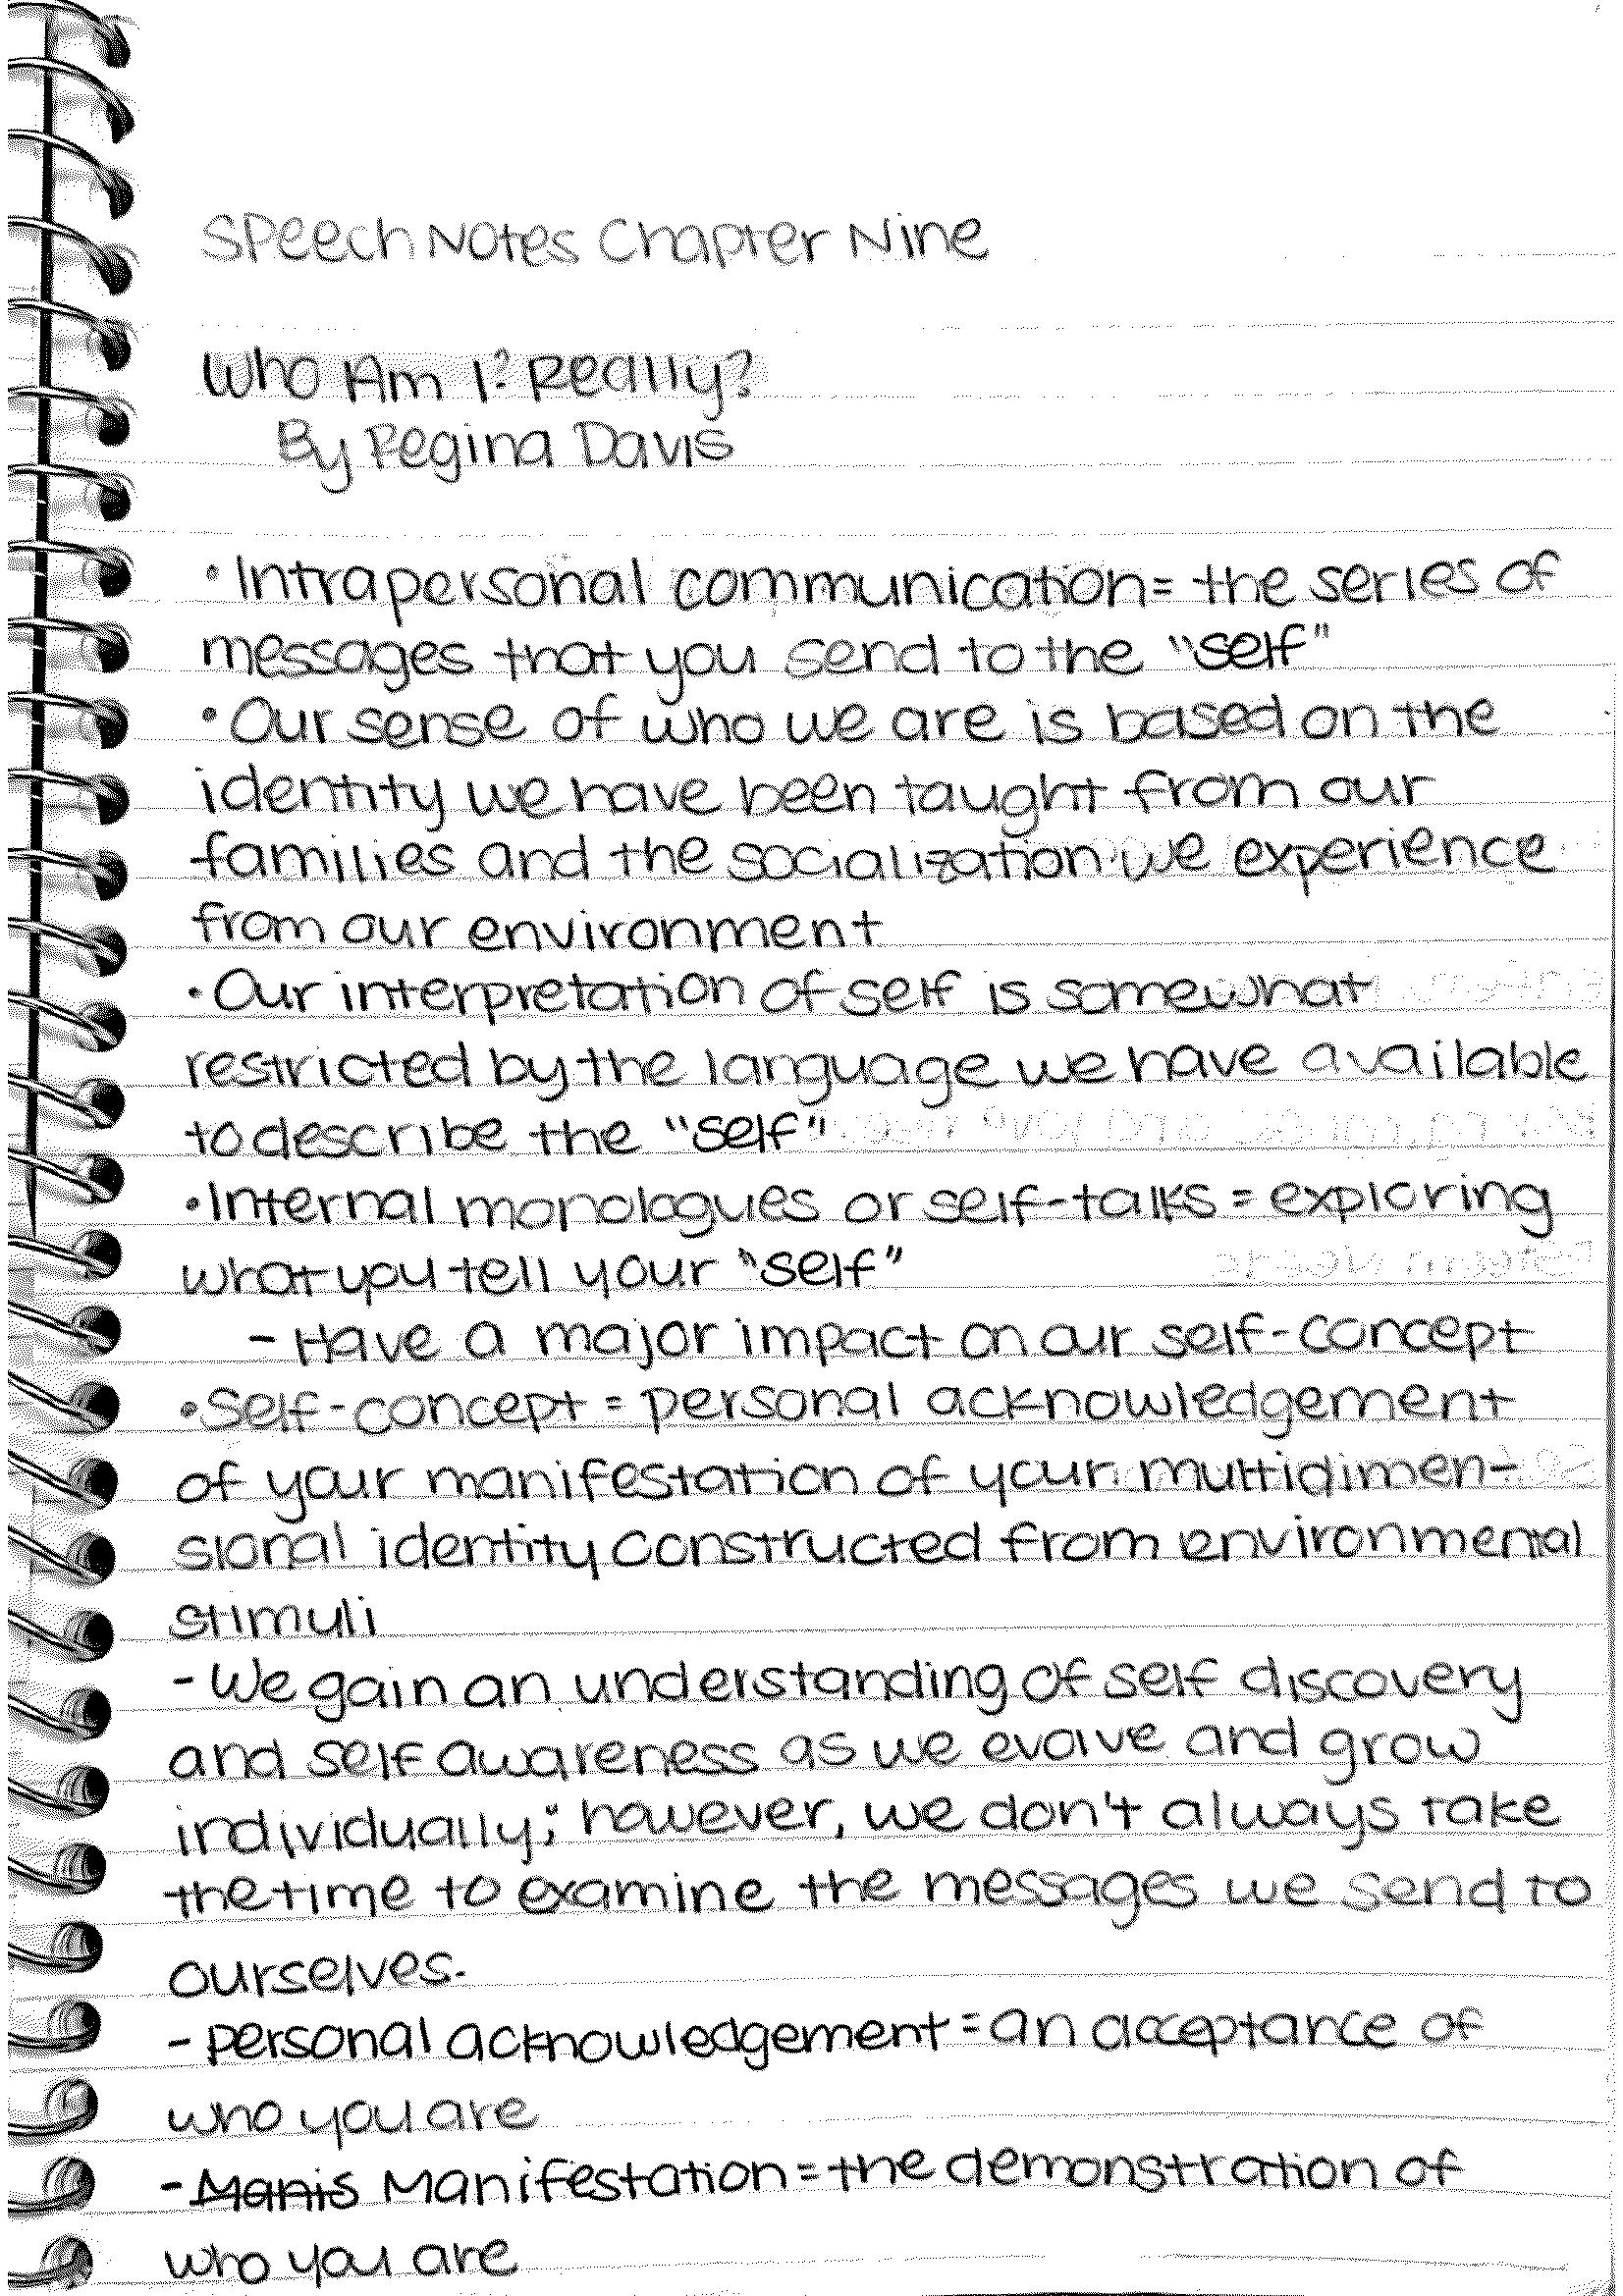 Speech Notes Chapter Nine
Who Am I? Really?
By Regina Davis
• Intrapersonal communication = the series of
messages that you send to the "self"
• Our sense of who we are is based on the
identity we have been taught from our
families and the socialization we experience
from our environment
• Our interpretation of self is somewhat
restricted by the language we have available
to describe the "self"
• Internal monologues or self-talks = exploring
what you tell your "self"
- Have a major impact on our self-concept
• Self-concept = personal acknowledgement
of your manifestation of your multidimen-
sional identity constructed from environmental
stimuli
- We gain an understanding of self discovery
and self awareness as we evolve and grow
individually; however, we don't always take
the time to examine the messages we send to
ourselves.
- Personal acknowledgement = an acceptance of
who you are
- Manis Manifestation = the demonstration of
who you are